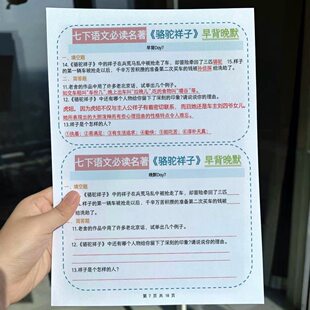 七下语文必读名著《骆驼祥子》早背晚默
早背Day7
一、填空题
14.《骆驼祥子》中的祥子在兵荒马乱中被抢走了车，却冒险牵回了三匹骆驼 15.祥
子的第一辆车被抢走以后，千辛万苦积攒的准备第二次买车的钱被孙侦探给洗劫了。
二、简答题
11.老舍的作品中用了许多老北京话，试举出几个例子。
12.《骆驼祥子》中还有哪个人物给你留下了深刻的印象?请说说你的理由。
虎妞。因为虎妞不仅与主人公祥子有着密切联系，而且她还是车主刘四爷女儿。
13.祥子是个怎样的人?
七下语文必读名著《骆驼祥子》早背晚默
晚默Day7
一、填空题
14.《骆驼祥子》中的祥子在兵荒马乱中被抢走了车，却冒险牵回了三匹
15.祥子的第一辆车被抢走以后，千辛万苦积攒的准备第二次买车的钱被
给洗劫了。
二、简答题
11.老舍的作品中用了许多老北京话，试举出几个例子。
12.《骆驼祥子》中还有哪个人物给你留下了深刻的印象?请说说你的理由。
13.祥子是个怎样的人?
第 7 页 共 18 页